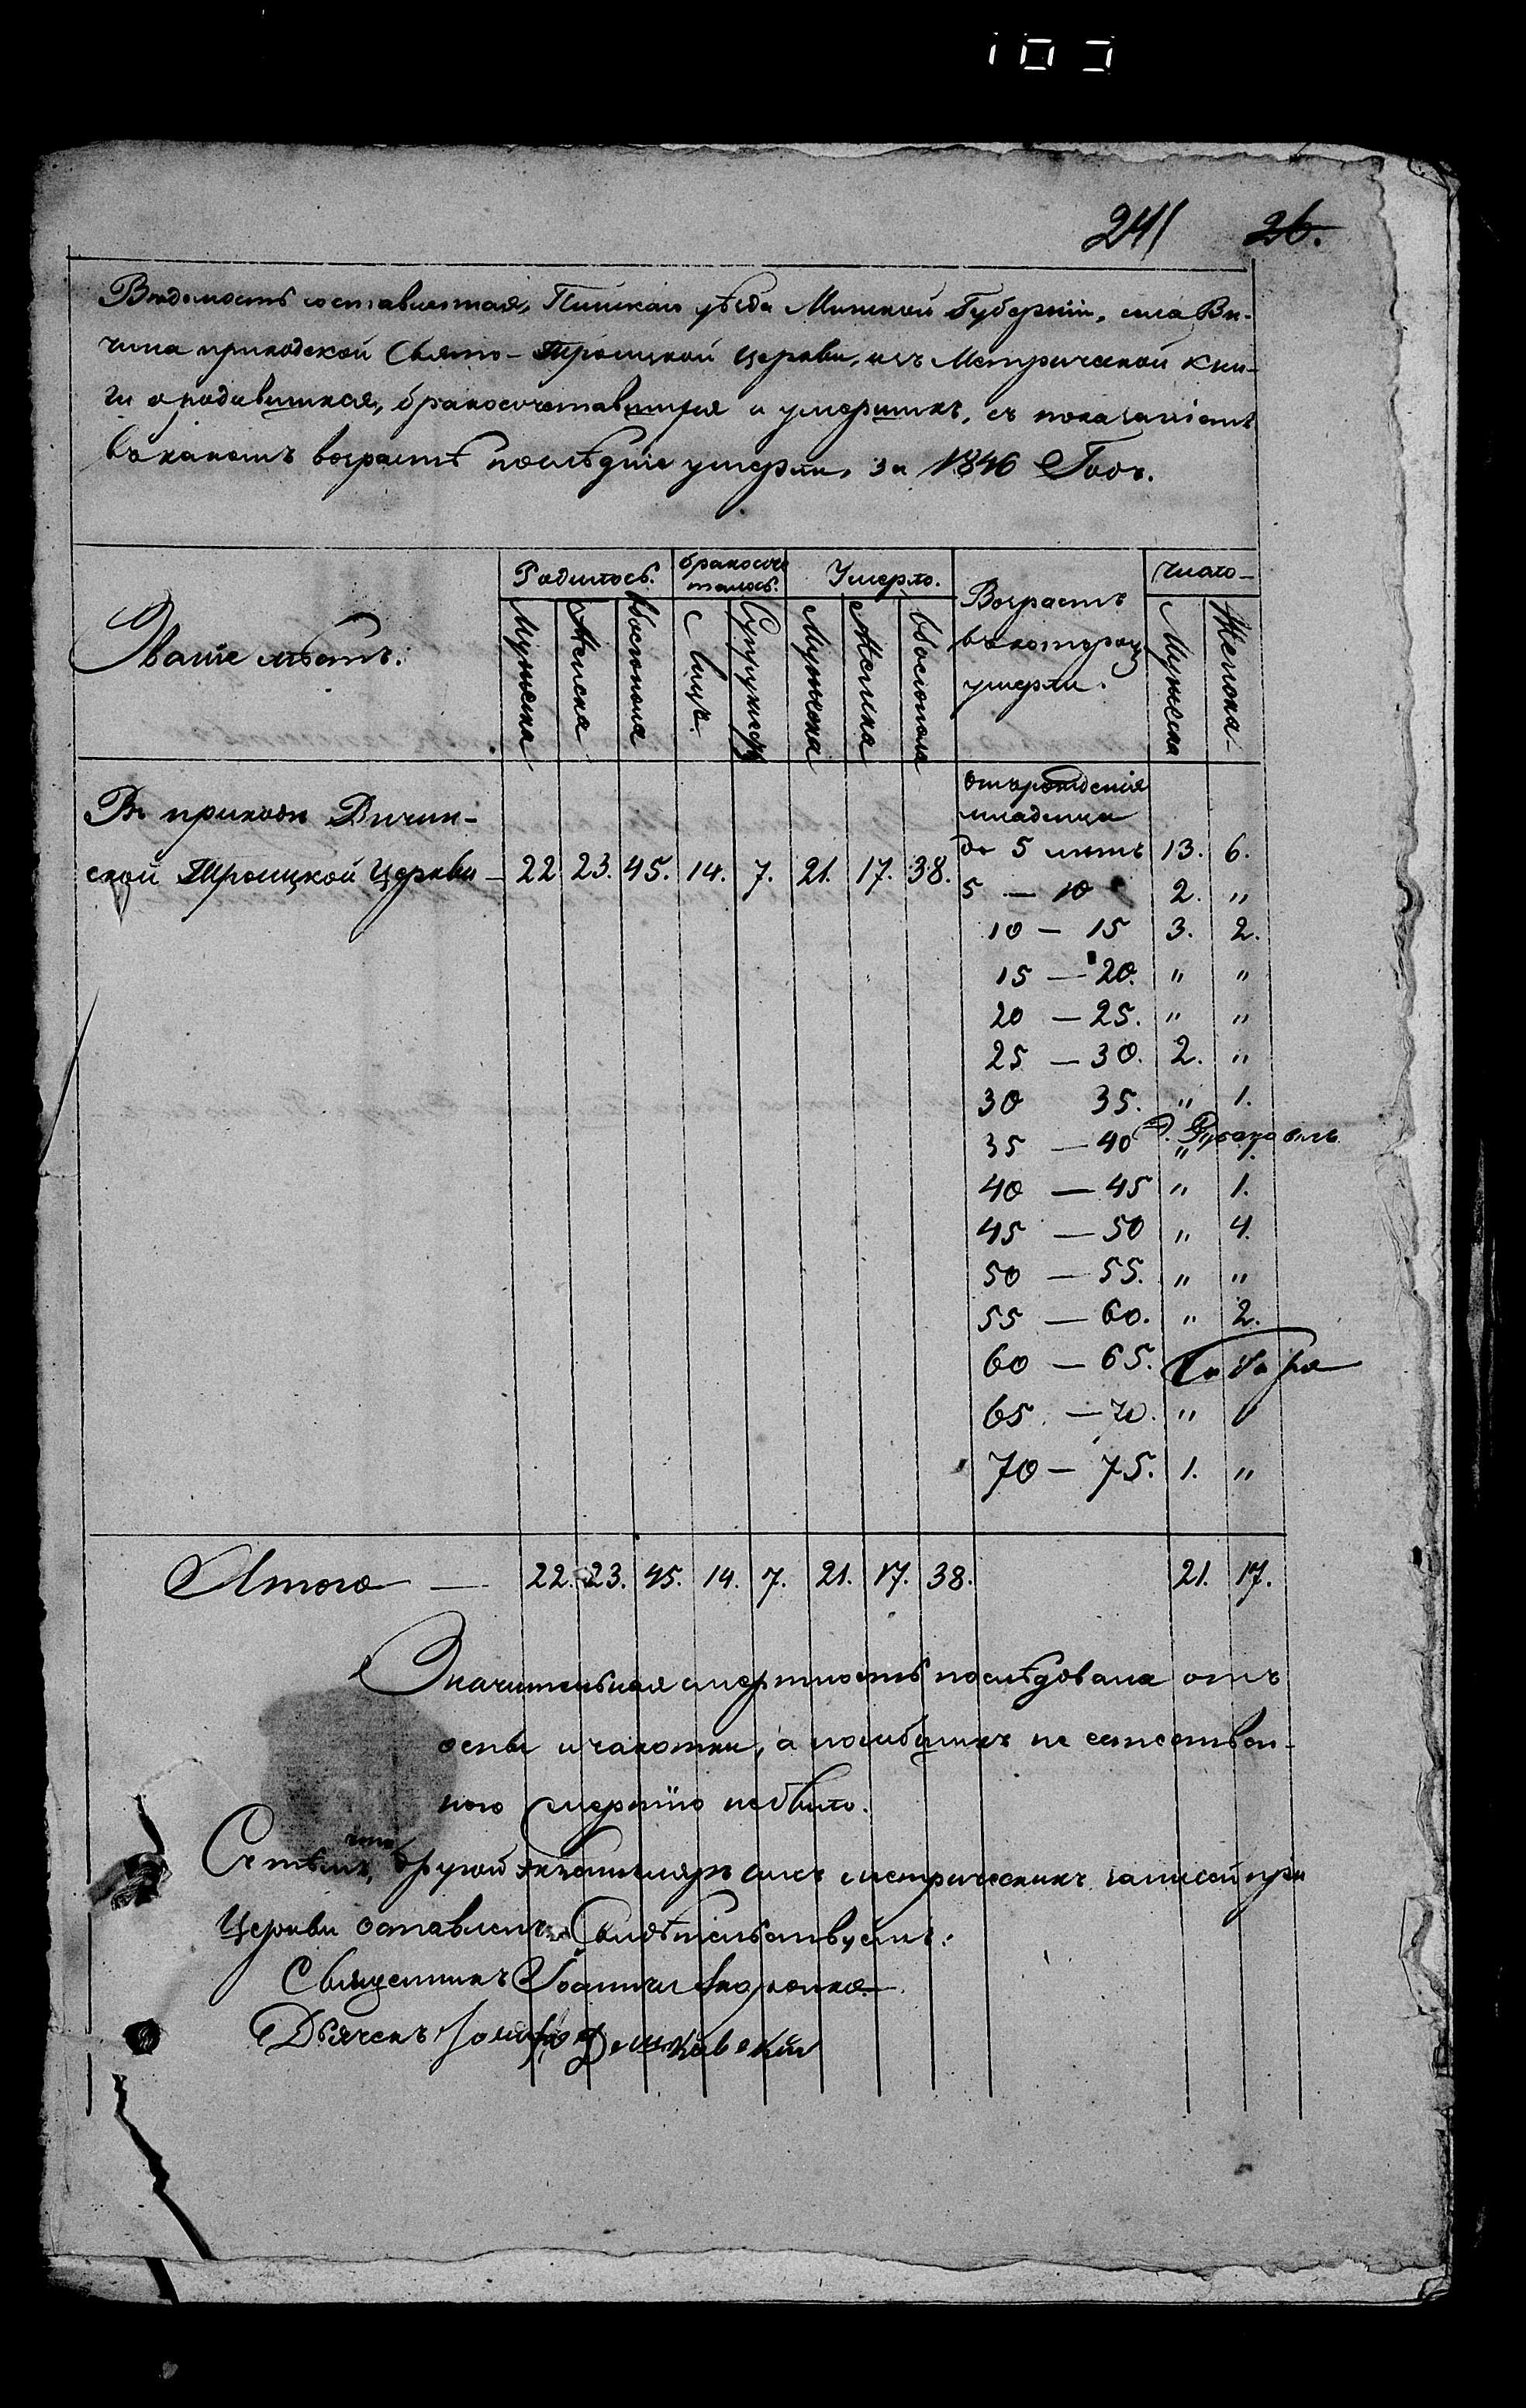 103
241 26.
Вѣдомость составленная, Пинскаго уѣзда Минской Губерніи, села Ви-
чина приходской Свято-Троицкой Церкви, изъ Метрической Кни-
ги о родившихся, бракосочетавшихся и умершихъ, съ показаніемъ
въ какомъ возрастѣ послѣдніе умерли, за 1846 Годъ.
Званіе мѣстъ.
Родилось. бракосоче Умерло. Возрастъ число
талось. въ которомъ
умерли.
Мужеска Женска Обоегопола Лицъ. Супружествъ Мужеска Женска Обоегопола Мужеска Женска
Въ приходѣ Вичин-
ской Троицкой Церкви — 22 23. 45. 14. 7. 21. 17. 38.
отъ рожденія
младенца
до 5 лѣтъ 13. 6.
5 — 10 2. "
10 — 15 3. 2.
15 — 20. " "
20 — 25. " "
25 — 30. 2. "
30 35. " 1.
35 — 40 " 1.
40 — 45 " 1.
45 — 50 " 4.
50 — 55. " "
55 — 60. " 2.
60 — 65.
65. — 70. " "
70 — 75. 1. "
Итого — 22. 23. 45. 14. 7. 21. 17. 38. 21. 17.
Значительная смертность послѣдовала отъ
оспы и чахотки, а погибшихъ не естествен-
ною смертію небыло.
Съ тѣмъ, что другой экземпляръ сихъ метрическихъ записей при
Церкви оставленъ Свидѣтельствуемъ:
Священникъ Іоаннъ
Дьячекъ